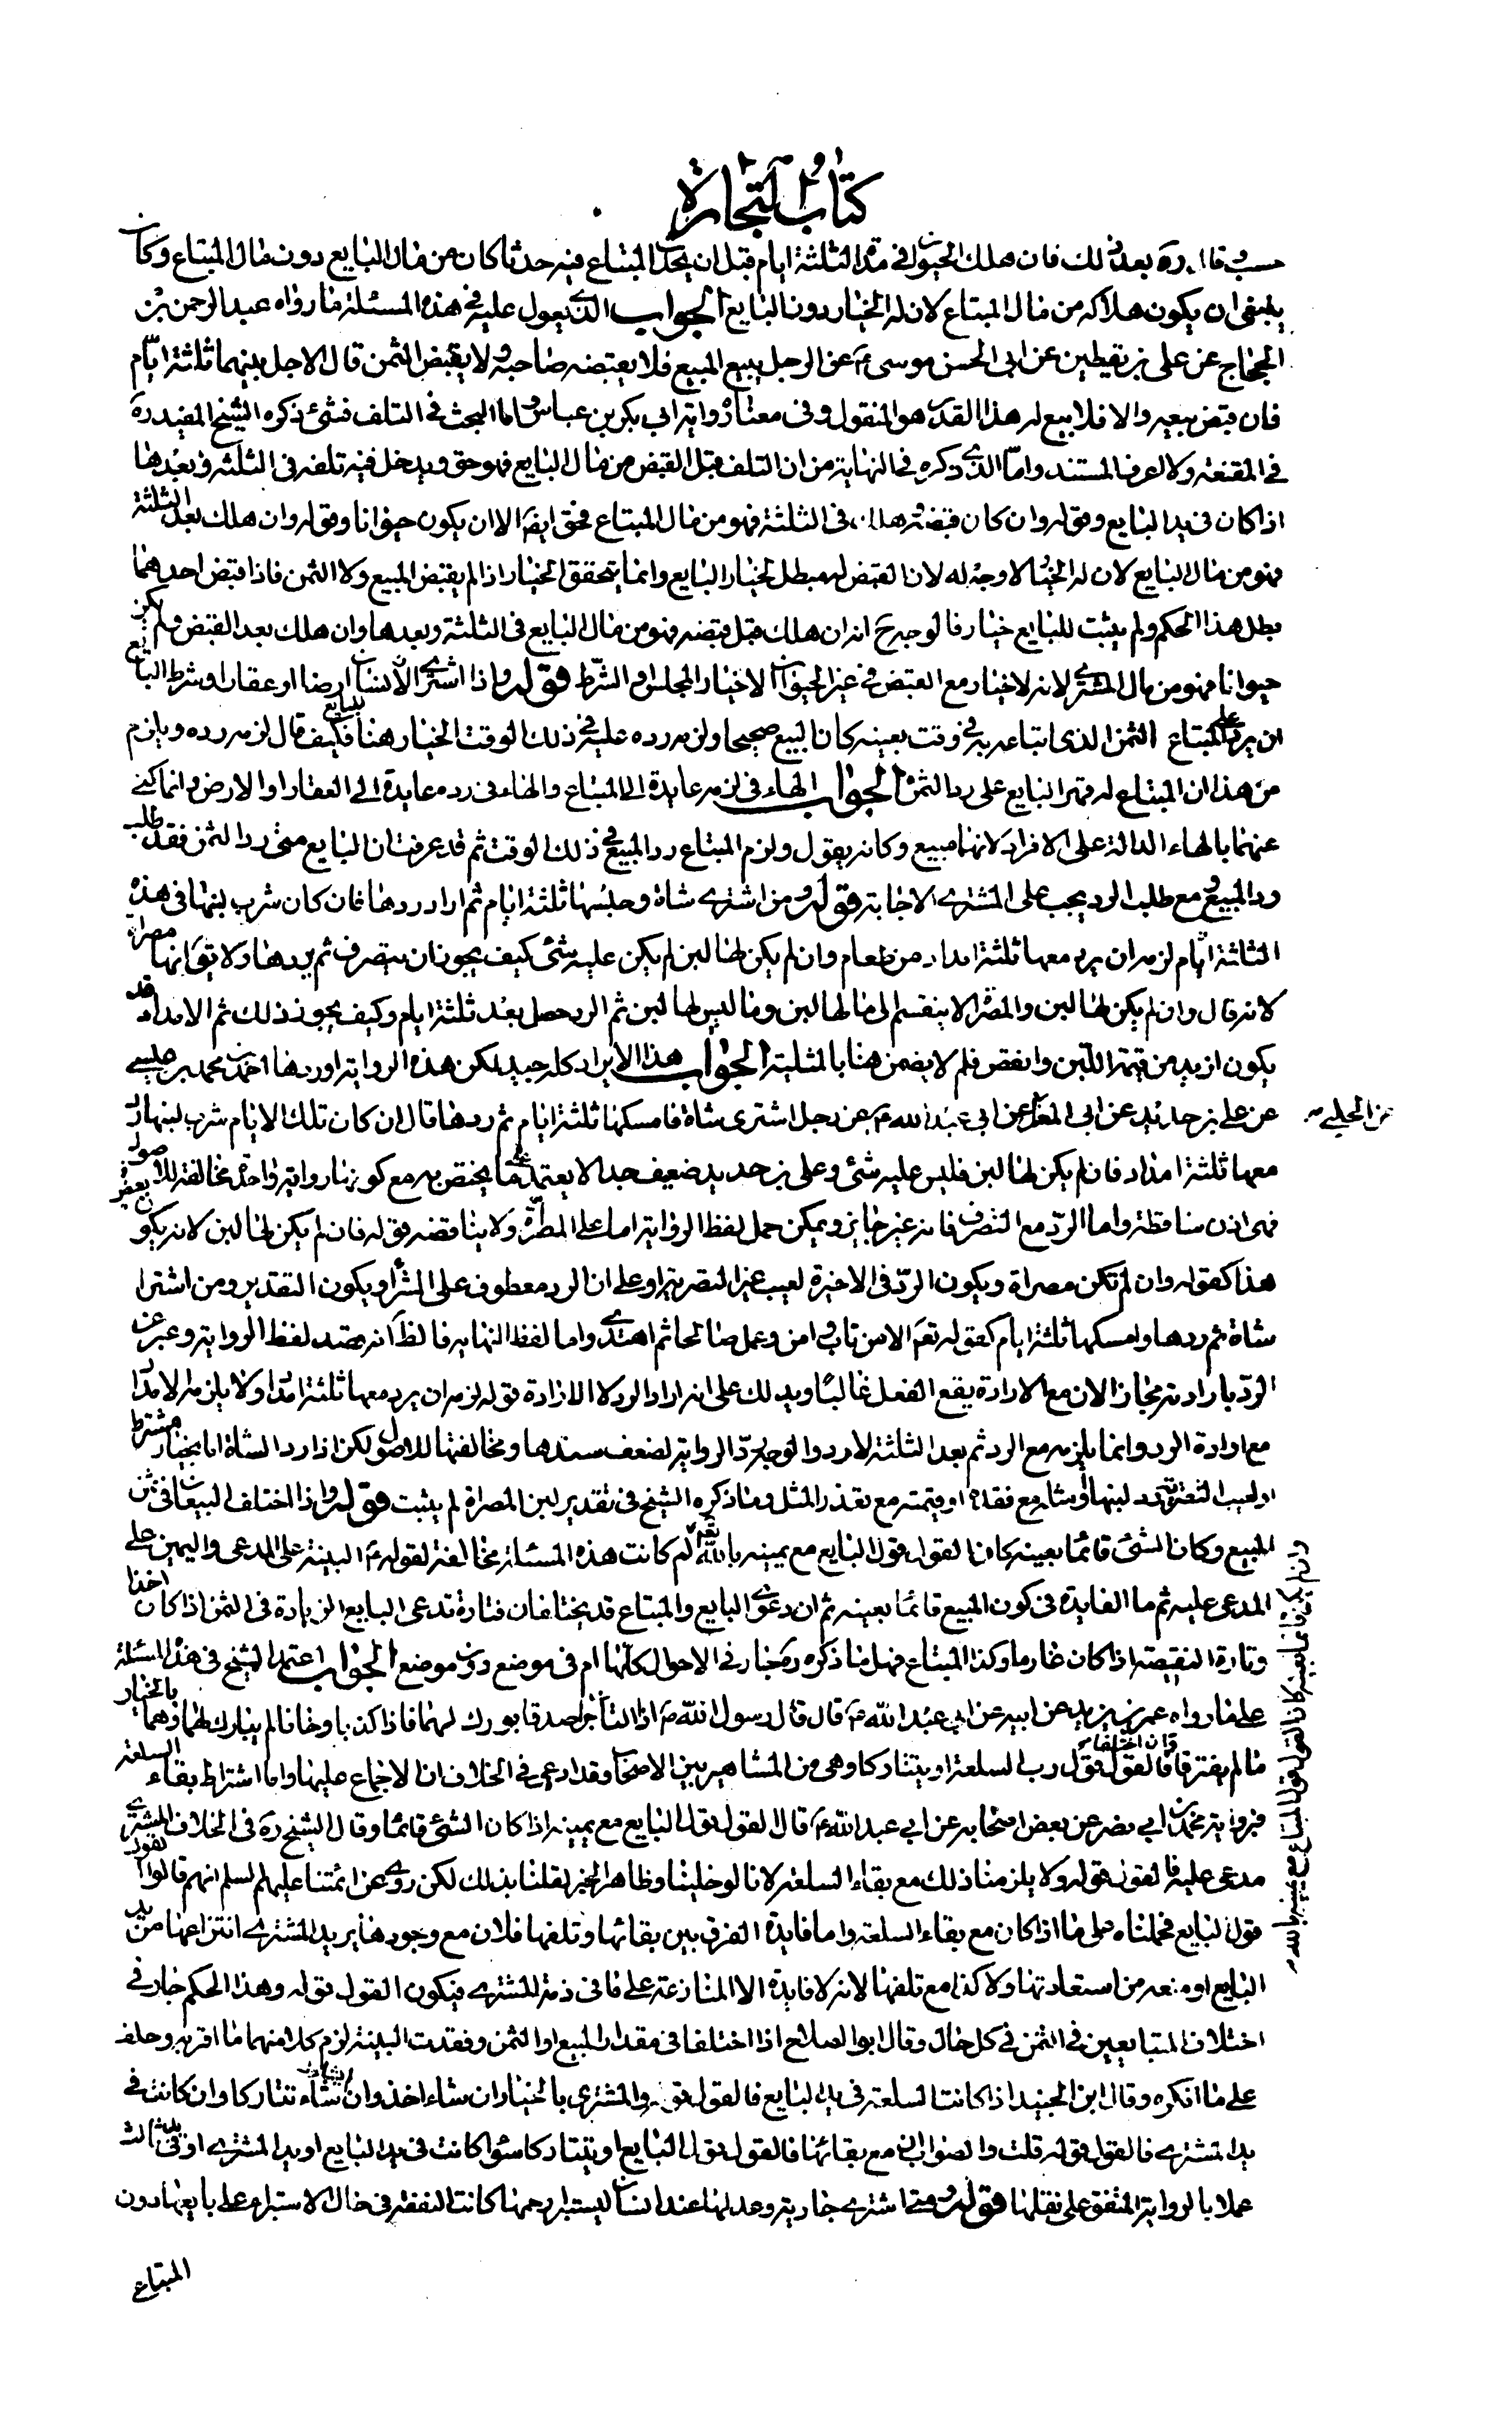 كتاب التجارة
حسب وقال ره بعد ذلك فان هلك الحيوان في مدة الثلثة ايام قبل ان يحدث المبتاع فيه حدثا كان من مال البايع دون مال المبتاع وكان
ينبغي ان يكون هلاكه من مال المبتاع لان له الخيار دون البايع الجواب الذي يعول عليه في هذه المسئلة ما رواه عبد الرحمن بن
الحجاج عن على بن يقطين عن ابى الحسن موسى ع عن الرجل يبيع المبيع فلا يقبضه صاحبه ولا يقبض الثمن قال الاجل بينهما ثلثة ايام
فان قبض بيعه والا فلا بيع له هذا القدر هو المنقول وفى معناه رواية ابى بكر بن عياش واما البحث في التلف فشئ ذكره الشيخ المفيد ره
في المقنعة ولا اعرف المستند واما الذي ذكره في النهاية من ان التلف قبل القبض من مال البايع فهو حق ويدخل فيه تلفه في الثلثة وبعدها
اذا كان في يد البايع وقوله وان كان قبضه ثم هلك في الثلثة فهو من مال المبتاع فحق ايضا الا ان يكون حيوانا وقوله وان هلك بعد الثلثة
فهو من مال البايع لان له الخيار لا وجه له لان القبض له مبطل لخيار البايع وانما يتحقق الخيار اذا لم يقبض المبيع ولا الثمن فاذا قبض احدهما
بطل هذا الحكم ولم يثبت للبايع خيار فالوجه ح انه ان هلك قبل قبضه فهو من مال البايع في الثلثة وبعدها وان هلك بعد القبض ولم يكن
حيوانا فهو من مال المشتري لانه لا خيار مع القبض في غير الحيوان الا خيار المجلس او الشرط قوله واذا اشترى الانسان ارضا او عقارا وشرط البايع
ان يرد على المبتاع الثمن الذى ابتاعه به في وقت بعينه كان البيع صحيحا ولزمه رده عليه في ذلك الوقت الخيار هنا للبايع فكيف قال لزمه رده ويلزم
من هذا ان المبتاع له قهر البايع على رد الثمن الجواب الهاء في لزمه عايدة الى المبتاع والهاء في رده عايدة الى العقار او الارض وانما كنى
عنهما بالهاء الدالة على الافراد لانهما مبيع وكانه يقول ولزم المبتاع رد المبيع في ذلك الوقت ثم قد عرفت ان البايع متى رد الثمن فقد طلب
رد المبيع ومع طلب الرد يجب على المشترى الاجابة قوله ومن اشترى شاة وحبسها ثلثة ايام ثم اراد ردها فان كان شرب لبنها في هذه
الثلثة ايام لزمه ان يرد معها ثلثة امداد من طعام وان لم يكن لها لبن لم يكن عليه شئ كيف يجوز ان يتصرف ثم يردها ولا يق انها مصراة
لانه قال وان لم يكن لها لبن والمصراة لا ينقسم الى ما لها لبن وما ليس لها لبن ثم الرد حصل بعد ثلثة ايام وكيف يجوز ذلك ثم الامداد قد
يكون ازيد من قيمة اللبن وانقص فلم لا يضمن هنا بالمثلية الجواب هذا الايراد كله جيد لكن هذه الرواية اوردها احمد بن محمد بن عيسى
عن على بن حديد عن ابى المغرا عن ابى عبد الله ع عن رجل اشترى شاة فامسكها ثلثة ايام ثم ردها قال ان كان تلك الايام شرب لبنها رد
عن الحلبي
معها ثلثة امداد فان لم يكن لها لبن فليس عليه شئ وعلى بن حديد ضعيف جدا لا يعتمد على ما يختص به مع كونها رواية واحدة مخالفة للاصول
فهي اذن ساقطة واما الرد مع التصرف فانه غير جايز ويمكن حمل لفظ الرواية اما على المصراة ولا يناقضه قوله فان لم يكن لها لبن لانه يكون
هذا كقوله وان لم تكن مصراة ويكون الرد في الاخيرة لعيب غير التصرية او على ان الرد معطوف على الشراء ويكون التقدير ومن اشترى
شاة ثم ردها وامسكها ثلثة ايام كقوله تعم الا من تاب وامن وعمل صالحا ثم اهتدى واما لفظ النهاية فالظ انه قصد لفظ الرواية وعبر عن
الرد بارادته مجازا لان مع الارادة يقع الفعل غالبا ويدلك على انه اراد الرد لا الارادة قوله لزمه ان يرد معها ثلثة امداد ولا يلزمه الامداد
مع ارادة الرد وانما يلزمه مع الرد ثم بعد الثلثة لا رد والوجه رد الرواية لضعف سندها ومخالفتها للاصول لكن اذا رد الشاة اما بخيار مشترط
او لعيب التصرية رد لبنها او مثله مع فقده او قيمته مع تعذر المثل وما ذكره الشيخ في تقدير لبن المصراة لم يثبت قوله واذا اختلف البيعان في ثمن
المبيع وكان الشئ قائما بعينه كان القول قول البايع مع يمينه بالله تعم لم كانت هذه المسئلة مخالفة لقوله ع البينة على المدعى واليمين على
المدعى عليه ثم ما الفايدة في كون المبيع قائما بعينه ثم ان دعوى البايع والمبتاع قد يختلفان فتارة تدعى البايع الزيادة في الثمن اذا كان اخذا
وتارة النقيصة اذا كان غارما وكذا المبتاع فهل ما ذكره ره جار في الاحوال كلها ام في موضع دون موضع الجواب اعتمد الشيخ في هذه المسئلة
على ما رواه عمر بن يزيد عن ابيه عن ابى عبد الله ع قال قال رسول الله ص اذا التاجران صدقا بورك لهما فاذا كذبا وخانا لم يبارك لهما وهما بالخيار
ما لم يفترقا فان اختلفا فالقول قول رب السلعة او يتتاركا وهى من المشاهير بين الاصحاب وقد ادعى في الخلاف ان الاجماع عليها واما اشتراط بقاء السلعة
فرواية محمد بن ابي نصر عن بعض اصحابه عن ابى عبد الله ع قال القول قول البايع مع يمينه اذا كان الشئ قائما وقال الشيخ ره في الخلاف المشتري
مدعى عليه فالقول قوله ولا يلزمنا ذلك مع بقاء السلعة لانا لو خلينا وظاهر الخبر لقلنا بذلك لكن روى عن ائمتنا عليهم السلم انهم قالوا القول
قول البايع فحملناه على ما اذا كان مع بقاء السلعة واما فايدة الفرق بين بقائها وتلفها فلان مع وجودها يريد المشترى انتزاعها من يد
البايع او منعه من استعادتها ولا كذا مع تلفها لانه لا فايدة الا المنازعة على ما في ذمة المشترى فيكون القول قوله وهذا الحكم جار في
اختلاف المتبايعين في الثمن في كل حال وقال ابو الصلاح اذا اختلفا في مقدار المبيع او الثمن وفقدت البينة لزم كلا منهما ما اقر به وحلف
على ما انكره وقال ابن الجنيد اذا كانت السلعة في يد البايع فالقول قوله والمشترى بالخيار ان شاء اخذ وان شاء تتاركا وان كانت في
يد المشترى فالقول قوله قلت والصواب ان مع بقائها فالقول قول البايع او يتتاركا سواء كانت في يد البايع او يد المشترى او في يد ثالث
عملا بالرواية المتفق على نقلها قوله ومتى اشترى جارية وعدلها عند انسان ليستبرء رحمها كانت النفقة في حال الاستبراء على بايعها دون
وان لم يكن قائما بعينه كان القول قول المبتاع مع يمينه بالله
المبتاع